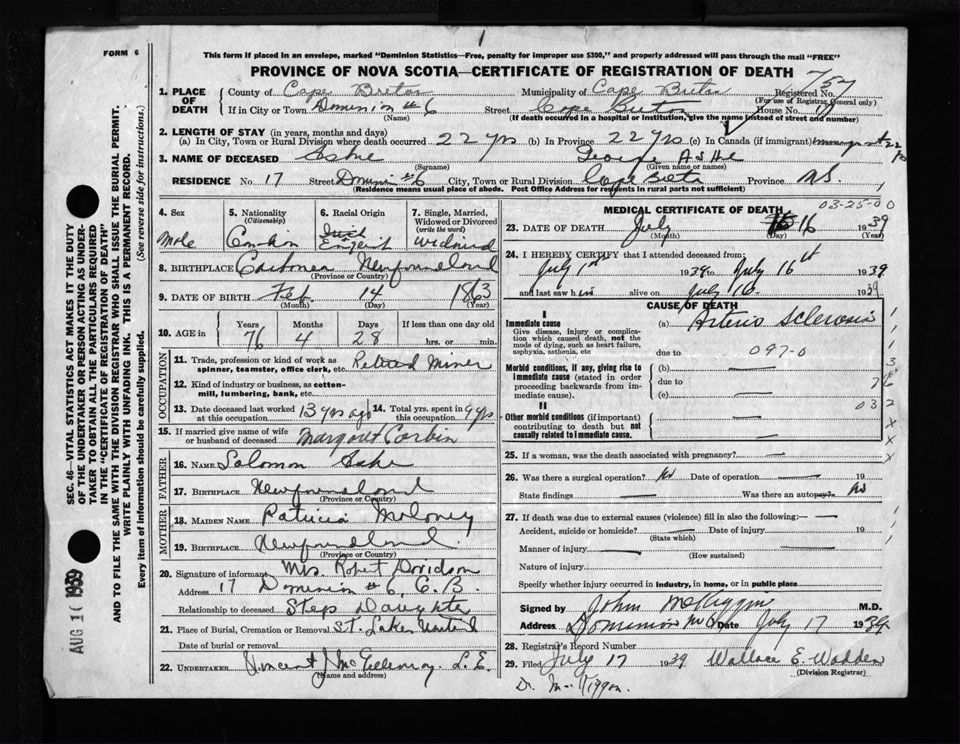 FORM 6
This form if placed in an envelope, marked "Dominion Statistics—Free, penalty for improper use $300," and properly addressed will pass through the mail "FREE"
PROVINCE OF NOVA SCOTIA—CERTIFICATE OF REGISTRATION OF DEATH
757
1. PLACE OF DEATH County of Cape Breton Municipality of Cape Breton Registered No.
(For use of Registrar General only)
If in City or Town Dominion #6 Street Cape Breton House No. 17
(Name) (If death occurred in a hospital or institution, give the name instead of street and number)
2. LENGTH OF STAY (in years, months and days)
(a) In City, Town or Rural Division where death occurred 22 yrs (b) In Province 22 yrs (c) In Canada (if immigrant) immigrant 22 yrs
3. NAME OF DECEASED Ashe George Ashe
(Surname) (Given name or names)
RESIDENCE No. 17 Street Dominion #6 City, Town or Rural Division Cape Breton Province N.S.
(Residence means usual place of abode. Post Office Address for residents in rural parts not sufficient)
4. Sex Male
5. Nationality (Citizenship)
6. Racial Origin Irish
7. Single, Married, Widowed or Divorced (write the word) Widowed
8. BIRTHPLACE Carbonear Newfoundland
(Province or Country)
9. DATE OF BIRTH Feb 14 1863
(Month) (Day) (Year)
10. AGE in Years 76 Months 4 Days 28 If less than one day hrs. or min.
OCCUPATION
11. Trade, profession or kind of work as spinner, teamster, office clerk, etc. Retired Miner
12. Kind of industry or business, as cotton-mill, lumbering, bank, etc.
13. Date deceased last worked at this occupation 13 yrs ago 14. Total yrs. spent in this occupation 9 yrs.
15. If married give name of wife or husband of deceased Margaret Corbin
FATHER
16. NAME Solomon Ashe
17. BIRTHPLACE Newfoundland
(Province or Country)
MOTHER
18. MAIDEN NAME Patricia Moloney
19. BIRTHPLACE Newfoundland
(Province or Country)
20. Signature of informant Mrs. Robert Davidson
Address 17 Dominion #6, C.B.
Relationship to deceased Step Daughter
21. Place of Burial, Cremation or Removal St. Lukes United
Date of burial or removal
22. UNDERTAKER Vincent J McGillivray. L.E.
(Name and address)
MEDICAL CERTIFICATE OF DEATH 03-25-00
23. DATE OF DEATH July 16 1939
(Month) (Day) (Year)
24. I HEREBY CERTIFY that I attended deceased from:
July 1st 1939 to July 16th 1939
and last saw him alive on July 16 1939
CAUSE OF DEATH
I
Immediate cause (a) Arterio Sclerosis
Give disease, injury or complication which caused death, not the mode of dying, such as heart failure, asphyxia, asthenia, etc
due to 097-0
Morbid conditions, if any, giving rise to immediate cause (stated in order proceeding backwards from immediate cause).
(b)
due to
(c)
II
Other morbid conditions (if important) contributing to death but not causally related to immediate cause.
25. If a woman, was the death associated with pregnancy?
26. Was there a surgical operation? No Date of operation 19
State findings Was there an autopsy? No
27. If death was due to external causes (violence) fill in also the following:—
Accident, suicide or homicide? Date of injury 19
(State which)
Manner of injury
(How sustained)
Nature of injury
Specify whether injury occurred in industry, in home, or in public place
Signed by John McKiggin M.D.
Address Dominion No 6 Date July 17 1939
28. Registrar's Record Number
29. Filed July 17 1939 Wallace E. Wadden
(Division Registrar)
Dr. McKiggan.
SEC. 46—VITAL STATISTICS ACT MAKES IT THE DUTY
OF THE UNDERTAKER OR PERSON ACTING AS UNDER-
TAKER TO OBTAIN ALL THE PARTICULARS REQUIRED
IN THE "CERTIFICATE OF REGISTRATION OF DEATH"
AND TO FILE THE SAME WITH THE DIVISION REGISTRAR WHO SHALL ISSUE THE BURIAL PERMIT.
WRITE PLAINLY WITH UNFADING INK. THIS IS A PERMANENT RECORD.
Every item of information should be carefully supplied. (See reverse side for instructions.)
AUG 1 1939